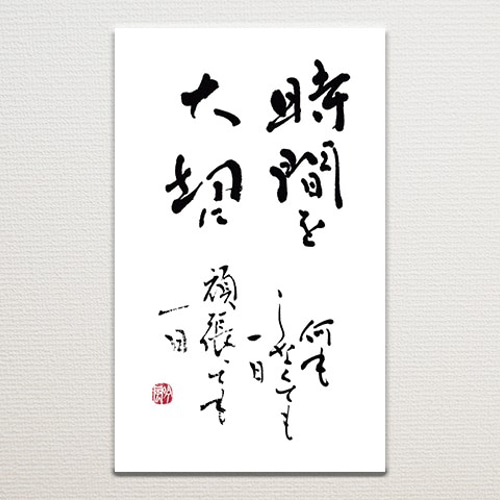 時間を
大切に
何も
しなくても
一日
頑張っても
一日